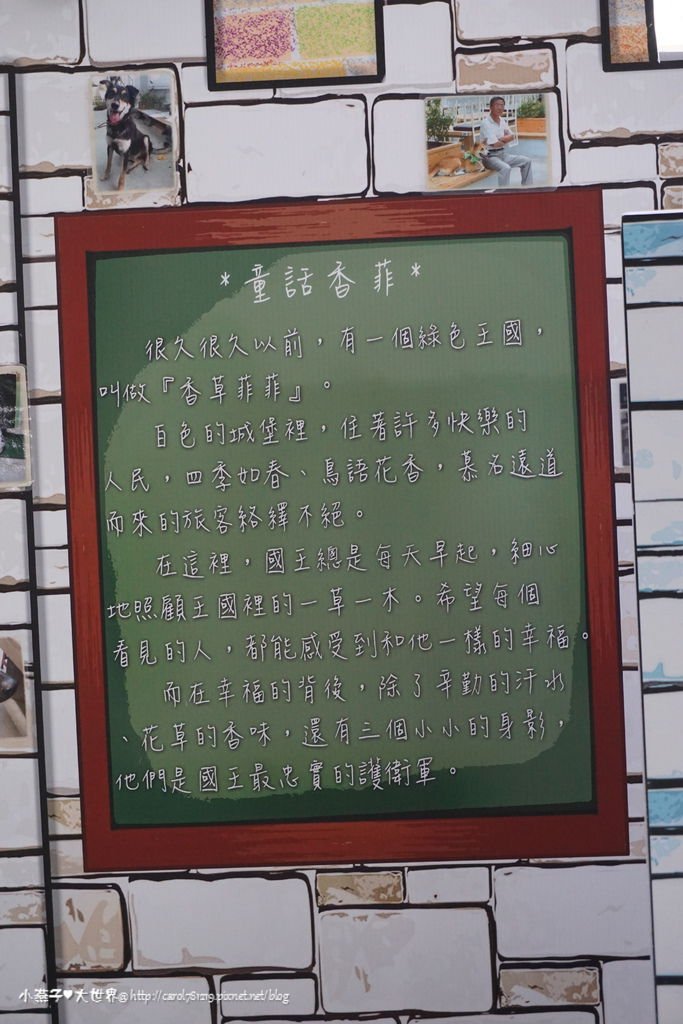 *童話香菲*
很久很久以前，有一個綠色王國，
叫做『香草菲菲』。
白色的城堡裡，住著許多快樂的
人民，四季如春、鳥語花香，慕名遠道
而來的旅客絡繹不絕。
在這裡，國王總是每天早起，細心
地照顧王國裡的一草一木。希望每個
看見的人，都能感受到和他一樣的幸福。
而在幸福的背後，除了辛勤的汗水
、花草的香味，還有三個小小的身影，
他們是國王最忠實的護衛軍。
小燕子♥大世界@http://carol781219.pixnet.net/blog